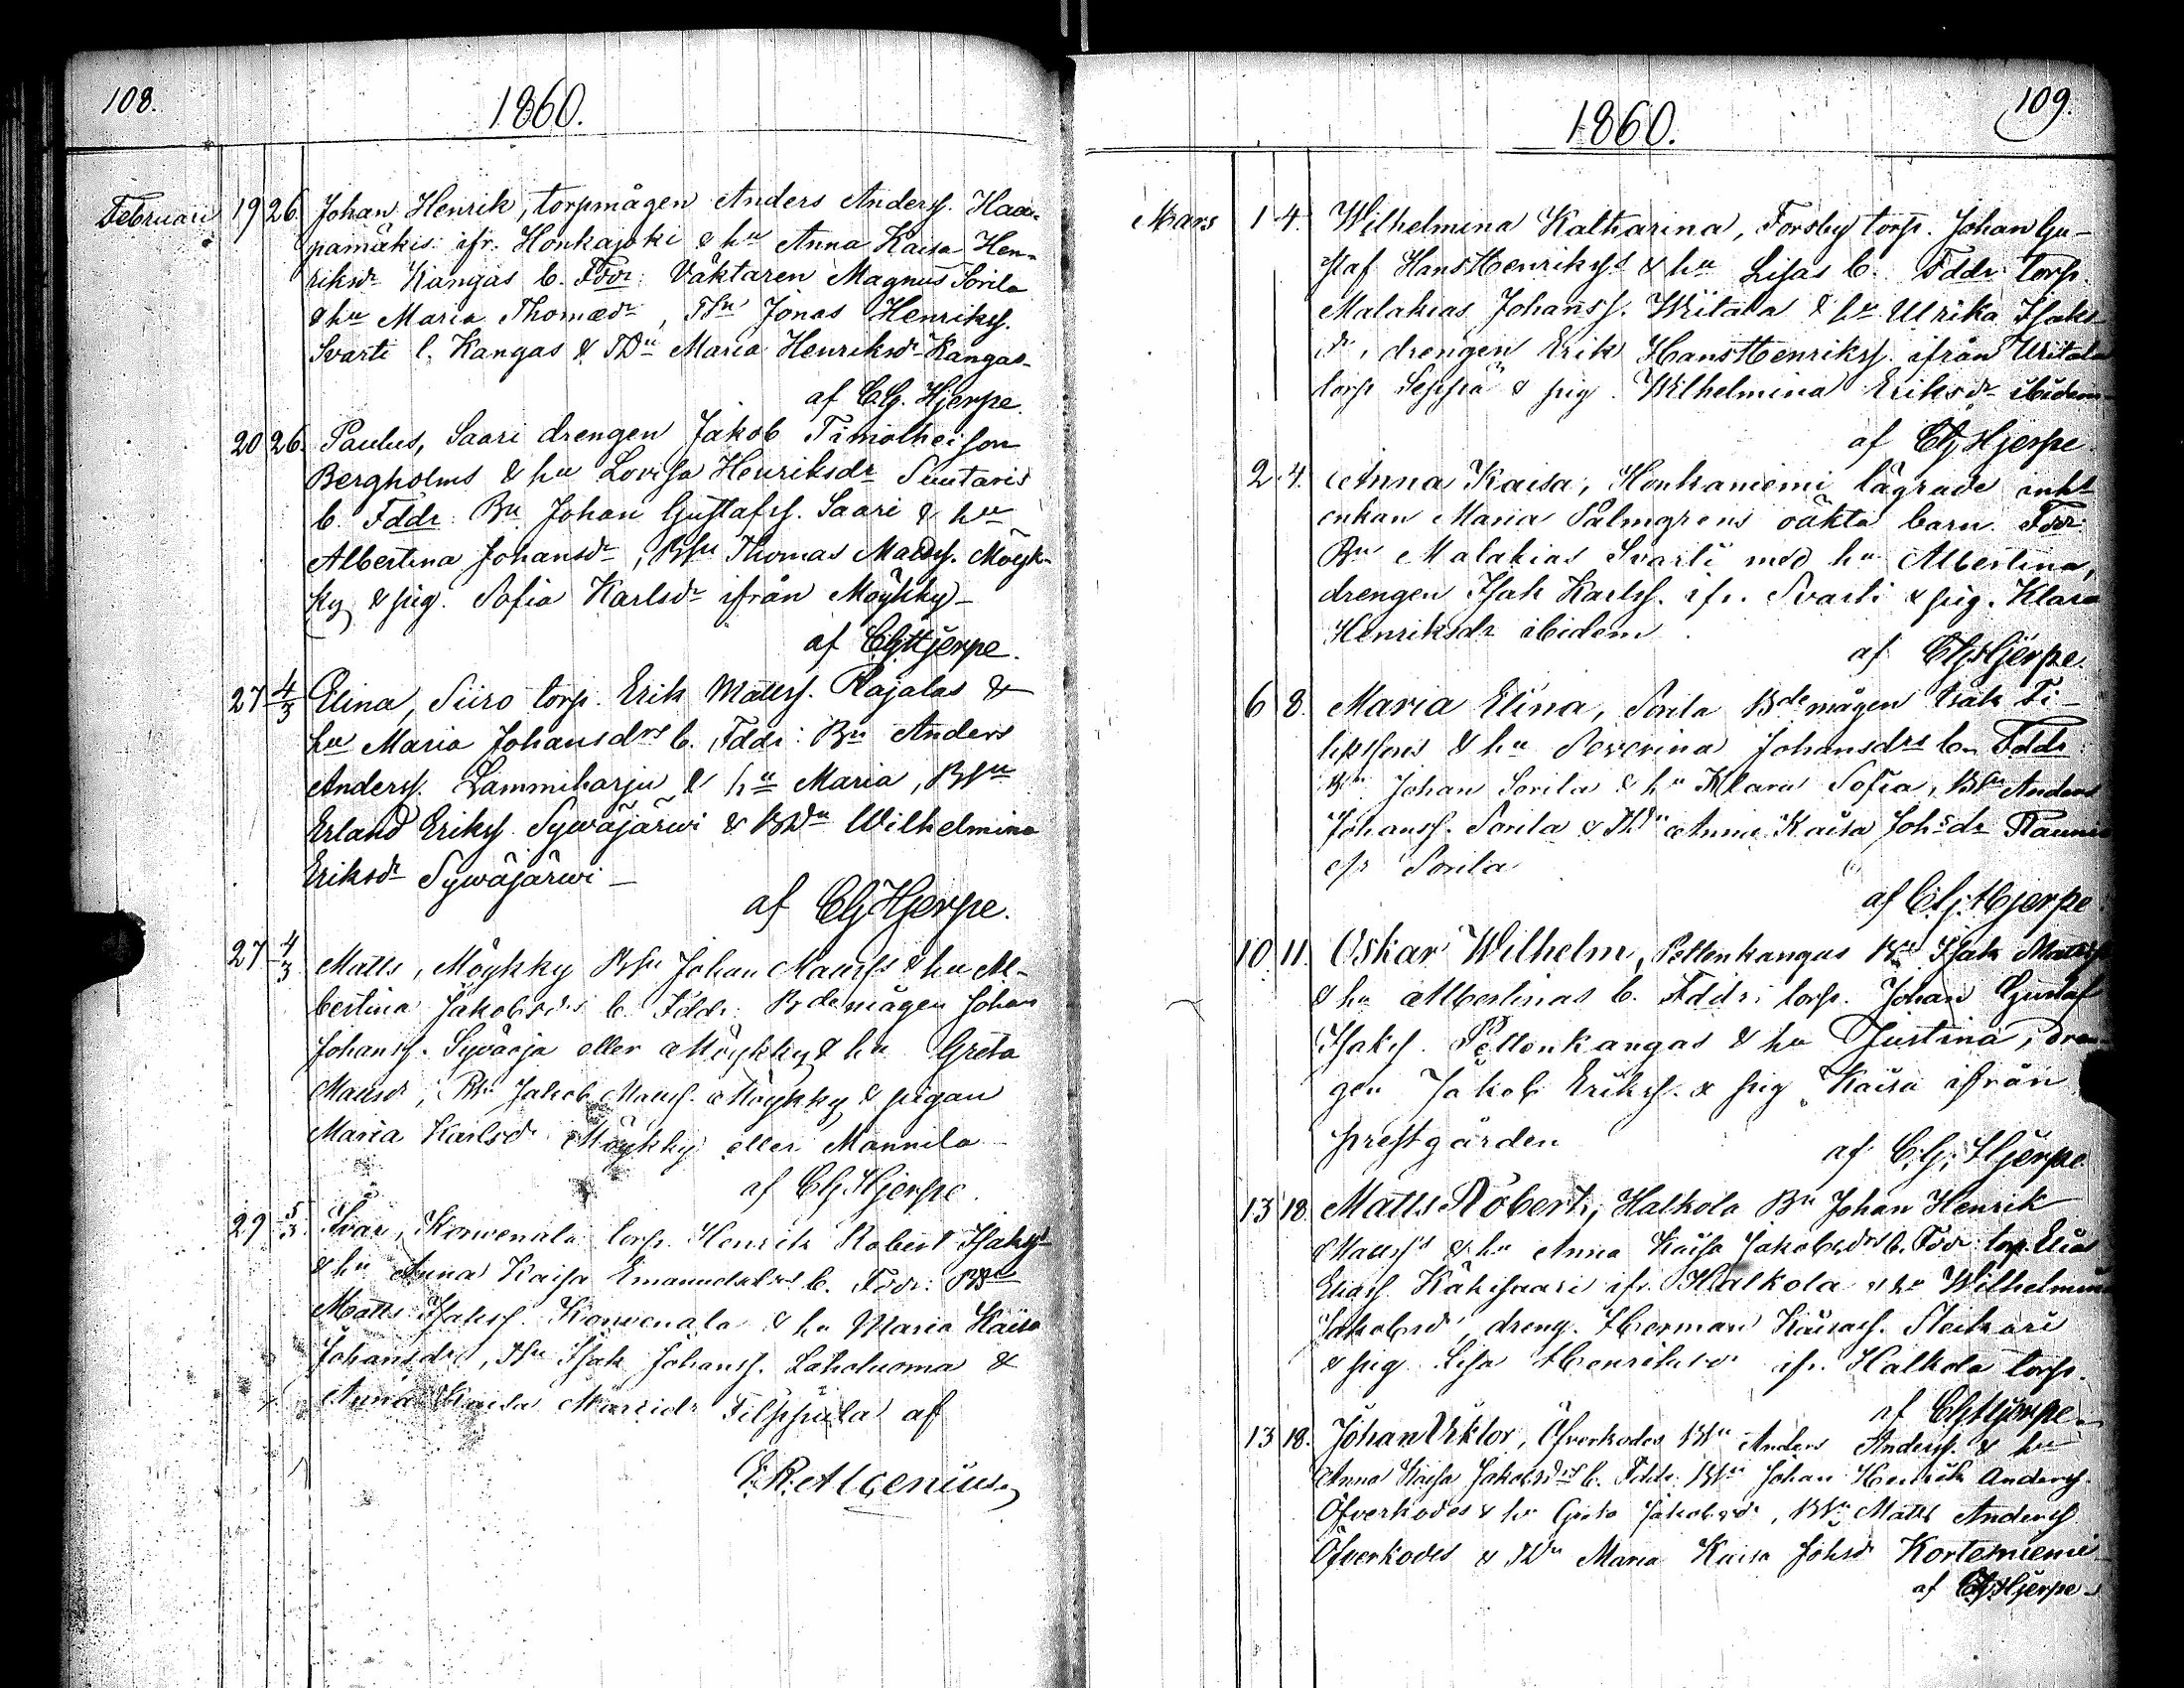 108.
1860.
Februari 19 26. Johan Henrik, torpmågen Anders Anderss. Haa-
pamäkis ifr. Honkajoki & hu Anna Kaisa Hen-
riksdr Kangas b. Fddr: Väktaren Magnus Sorila
& hu Maria Thomædr, TSn Jonas Henrikss.
Svarti l. Kangas & TDn Maria Henriksdr Kangas-
af CG. Hjerpe.
20 26. Paulus, Saari drengen Jakob Timotheison
Bergholms & hu Lovisa Henriksdr Suutaris
b. Fddr: Bn Johan Gustafss. Saari & hu
Albertina Johansdr, BSn Thomas Matss. Möyk-
ky & pig. Sofia Karlsdr ifrån Möykky-
af CGHjerpe.
27 4/3 Elina, Siiro torp. Erik Matss. Rajalas &
hu Maria Johansdrs b. Fddr: Bn Anders
Anderss. Lammiharju & hu Maria, BSn
Erland Erikss. Sywäjärwi & BDn Wilhelmina
Eriksdr Sywäjärwi-
af CGHjerpe.
27 4/3 Matts, Möykky BSn Johan Matss & hu Al-
bertina Jakobsdrs b. Fddr: Bdemågen Johan
Johanss. Syväoja eller Möykky & hu Greta
Matsdr, BSn Jakob Matss. Möykky & pigan
Maria Karlsdr Möykky eller Mannila
af CGHjerpe.
29 5/3. Ivar, Korvenala torp. Henrik Robert Isakss
& hu Anna Kaisa Emanuelsdrs b. Fddr: BSn
Matts Isakss. Korvenala & hu Maria Kaisa
Johansdr, TSn Isak Johanss. Laholuoma &
Anna Kaisa Filppula af
Alcenius
109.
1860.
Mars 1 4. Wilhelmina Katharina, Forsby torp. Johan Gu-
staf HansHenrikss & hu Lisas b. Fddr: torp.
Malakias Johanss. Wiitala & hu Ulrika Isaks-
dr, drengen Erik HansHenrikss. ifrån Wiitala
torp Seppä & pig. Wilhelmina Eriksdr ibidem-
af CG Hjerpe.
2 4. Anna Kaisa, Honkaniemi lägrade
enkan Maria Palmgrens oäkta barn. Fddr:
Bn Malakias Svarti med hu Albertina,
drengen Isak Karlss. ifr. Svarti & pig. Klara
Henriksdr ibidem.
af CGHjerpe.
6 8. Maria Elina, Sorila Bdemågen Isak Fi-
lipssons & hu Severina Johansdrs b. Fddr:
Bn Johan Sorila & hu Klara Sofia, BSn Anders
Johanss. Sorila & TDn Anna Kaisa Johsdr Raunio
ifr Sorila
af C.G. Hjerpe.
10 11. Oskar Wilhelm, Peltonkangas Bn Isak Matss
& hu Albertinas b. Fddr: torp. Johan Gustaf
Isakss. Peltonkangas & hu Justina, dren-
gen Jakob Erikss. & pig. Kaisa ifrån
prestgården
af C.G. Hjerpe
13 18. Matts Robert, Halkola Bn Johan Henrik
Matss & hu Anna Kaisa Jakobsdrs b. Fddr: torp. Elias
Eliass. Kähisaari ifr. Halkola & hu Wilhelmina
Jakobsdr, dreng. Herman
& pig. Lisa Henriksdr ifr. Halkola torp.
af CGHjerpe.
13 18. Johan Viktor, Öfverkodes BSn Anders Anderss. & hu
Anna Kaisa Jakobsdrs b. Fddr: BSn Johan Henrik Anderss.
Öfverkodes & hu Greta Jakobsdr, BSn Matts Anderss
Öfverkodes & TDn Maria Kaisa Johsdr Kortesniemi
af CGHjerpe-